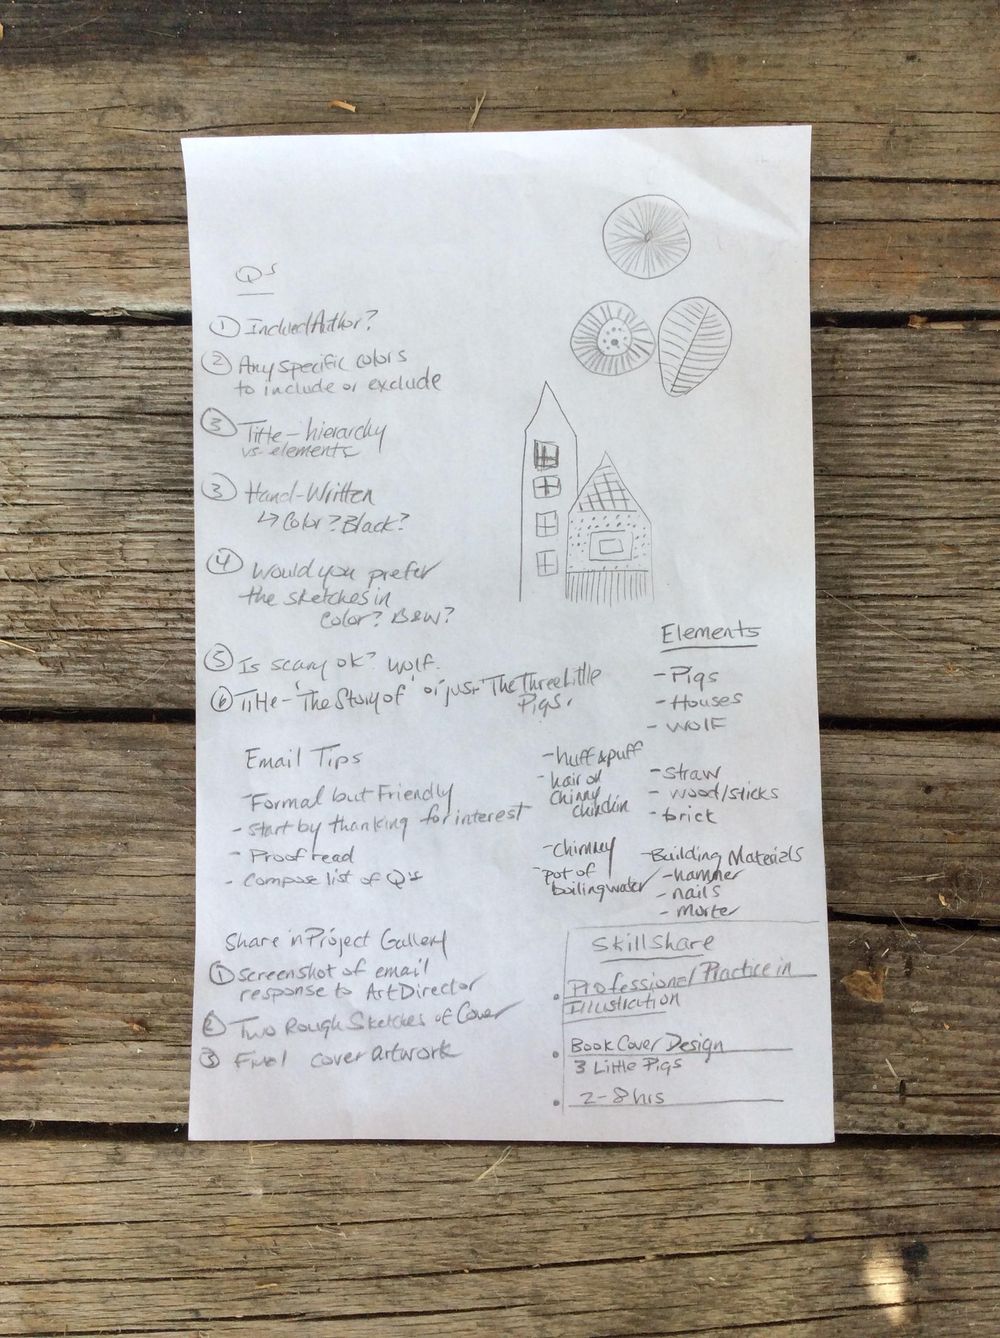 Qs
① Inclued Author?
② Any specific colors
to include or exclude
③ Title - hierarchy
vs. elements
③ Hand-Written
↳ Color? Black?
④ Would you prefer
the sketches in
Color? B&W?
⑤ Is scary ok? Wolf.
⑥ Title - 'The Story of' or just 'The Three Little
Pigs.
Email Tips
- Formal but Friendly
- start by thanking for interest
- Proof read
- Compose list of Q's
Share in Project Gallery
① Screenshot of email
response to Art Director
② Two Rough Sketches of Cover
③ Final cover artwork
Elements
- Pigs
- Houses
- Wolf
- huff & puff
- hair on
chinny
chin chin
- straw
- wood/sticks
- brick
- chimney
- pot of
boiling water
- Building Materials
- hammer
- nails
- morter
Skillshare
• Professional Practice in
Illustration
• Book Cover Design
3 Little Pigs
• 2-8 hrs